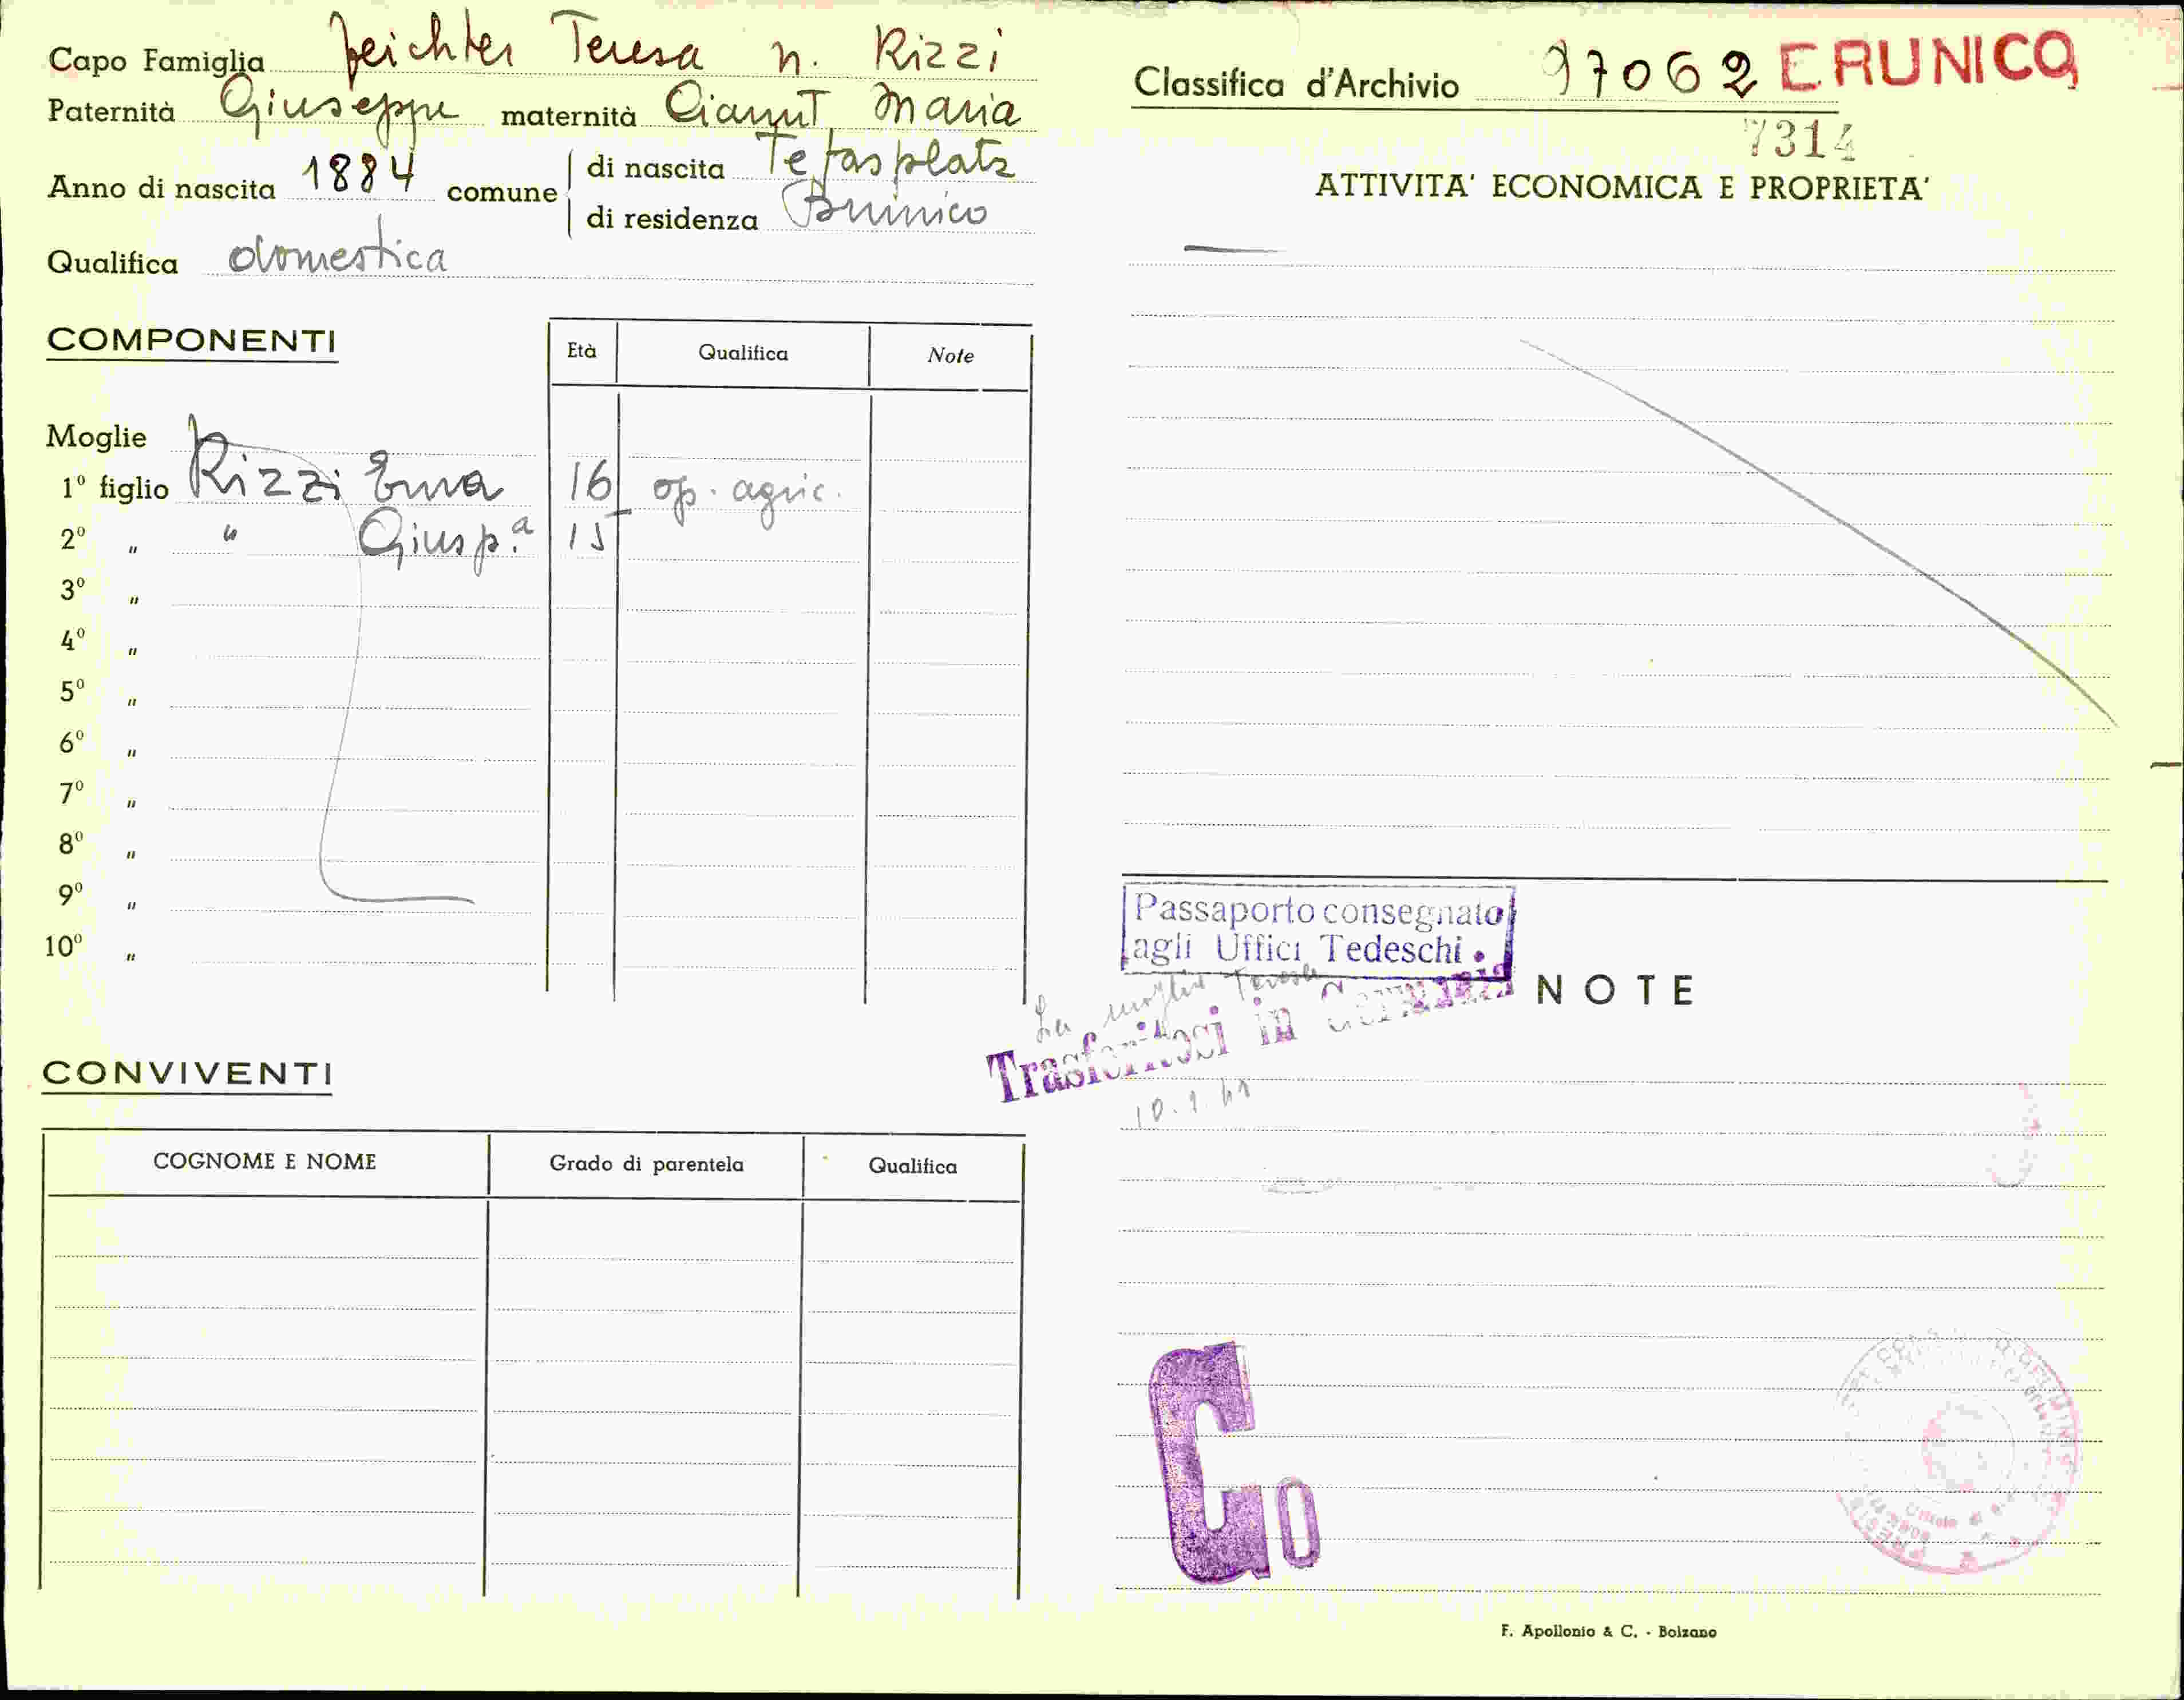 Capo Famiglia Feichter Teresa n. Rizzi
Paternità Giuseppe maternità Maria
Anno di nascita 1884 comune di nascita
di residenza Brunico
Qualifica domestica
COMPONENTI
Età Qualifica Note
Moglie
1º figlio Rizzi Erna 16 op. agric.
2º " " Giusp.a 15
3º "
4º "
5º "
6º "
7º "
8º "
9º "
10º "
CONVIVENTI
COGNOME E NOME Grado di parentela Qualifica
Classifica d'Archivio 97062 BRUNICO
7314
ATTIVITA' ECONOMICA E PROPRIETA'
Passaporto consegnato
agli Uffici Tedeschi.
NOTE
La moglie Teresa
Trasferitosi in Germania
10.1.41
G0
F. Apollonio & C. - Bolzano